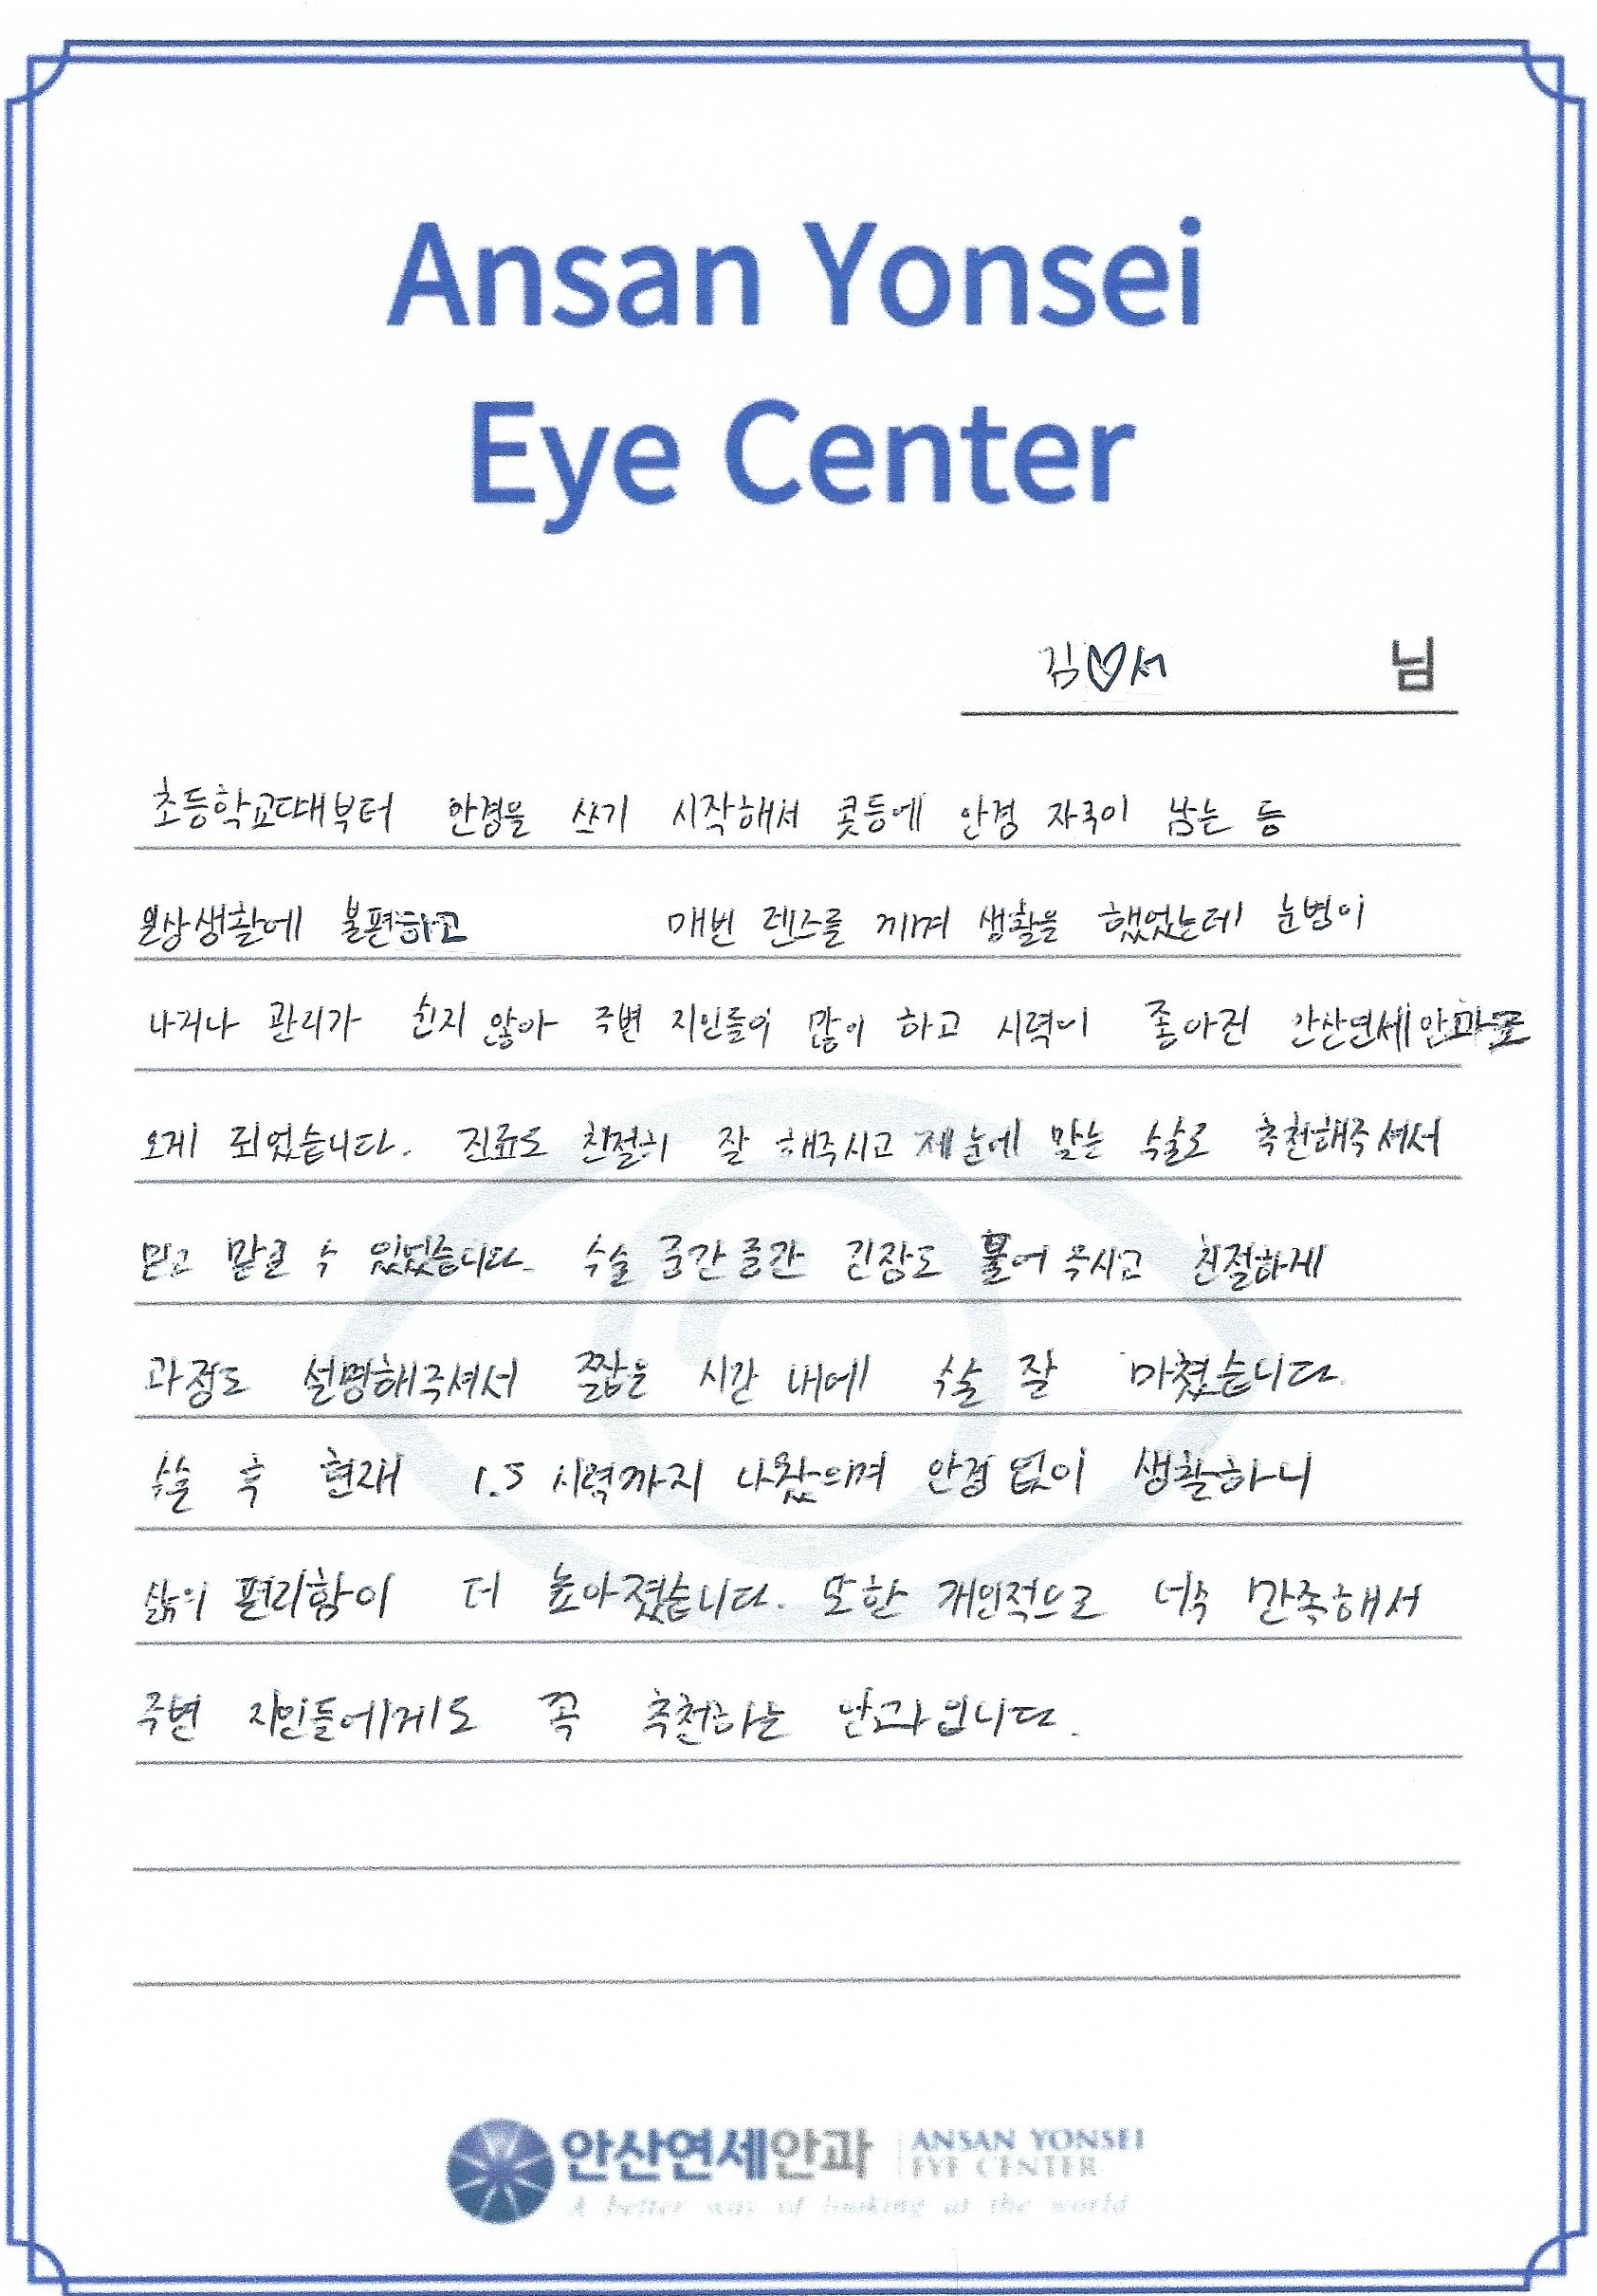 Ansan Yonsei
Eye Center
김♡서 님
초등학교때부터 안경을 쓰기 시작해서 콧등에 안경 자국이 남는 등
일상생활에 불편하고 매번 렌즈를 끼며 생활을 했었는데 눈병이
나거나 관리가 쉽지 않아 주변 지인들이 많이 하고 시력이 좋아진 안산연세안과로
오게 되었습니다. 진료도 친절히 잘 해주시고 제 눈에 맞는 수술로 추천해주셔서
믿고 맡길 수 있었습니다. 수술 중간중간 긴장도 풀어주시고 친절하게
과정도 설명해주셔서 짧은 시간 내에 수술 잘 마쳤습니다.
수술 후 현재 1.5 시력까지 나왔으며 안경 없이 생활하니
삶의 편리함이 더 높아졌습니다. 또한 개인적으로 너무 만족해서
주변 지인들에게도 꼭 추천하는 안과입니다.
안산연세안과 ANSAN YONSEI
EYE CENTER
A better way of looking at the world